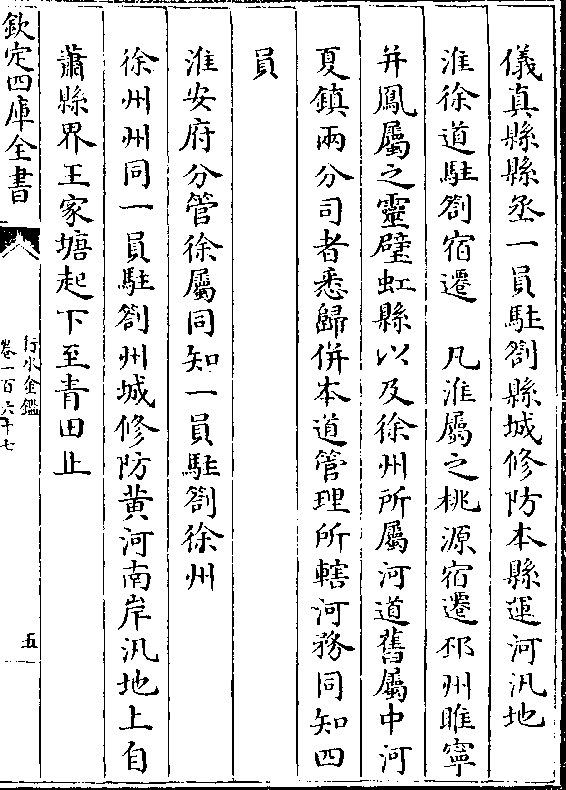 儀真縣縣丞一員駐劄縣城修防本縣運河汛地
淮徐道駐劄宿遷　凡淮屬之桃源宿遷邳州睢寧
并鳳屬之靈璧虹縣以及徐州所屬河道舊屬中河
夏鎮兩分司者悉歸併本道管理所轄河務同知四
員
淮安府分管徐屬同知一員駐劄徐州
徐州州同一員駐劄州城修防黄河南岸汛地上自
蕭縣界王家塘起下至青田止
欽定四庫全書
行水金鑑
卷一百六十七
五